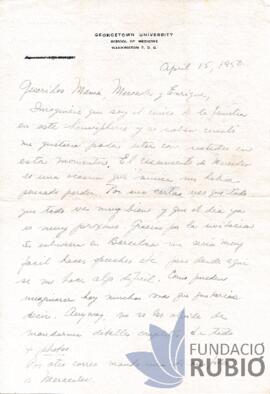 GEORGETOWN UNIVERSITY
SCHOOL OF MEDICINE
WASHINGTON 7, D. C.
April 15, 1952
Queridos Mamá, Mercedes y Enrique,
Imaginaré que soy el único de la familia
en este hemisferio y no saben cuanto
me gustaría poder estar con ustedes en
estos momentos. El casamiento de Mercedes
es una ocasión que nunca me había
pensado perder. Por sus cartas veo que todo
que todo va muy bien y que el día ya
es muy próximo. Gracias por la invitación
Si estuviera en Barcelona me sería muy
fácil hacer pero desde aquí
se me hace algo difícil. Como pueden
imaginarse hay muchas más que gustarías
decir. Anyway, no se les olvide de
mandarme detalles de todo
+ photos
Por otro correo mando
a Mercedes.
FUNDACIÓ
RUBIÓ